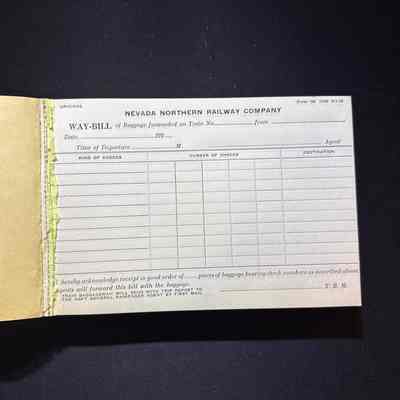 ORIGINAL
NEVADA NORTHERN RAILWAY COMPANY
WAY-BILL of Baggage forwarded on Train No. from
Date 191
Time of Departure M Agent
KIND OF CHECKS NUMBER OF CHECKS DESTINATION
I hereby acknowledge receipt in good order of pieces of baggage bearing check numbers as described above
Agents will forward this bill with the baggage. T. B. M.
TRAIN BAGGAGEMAN WILL SEND WITH TRIP REPORT TO